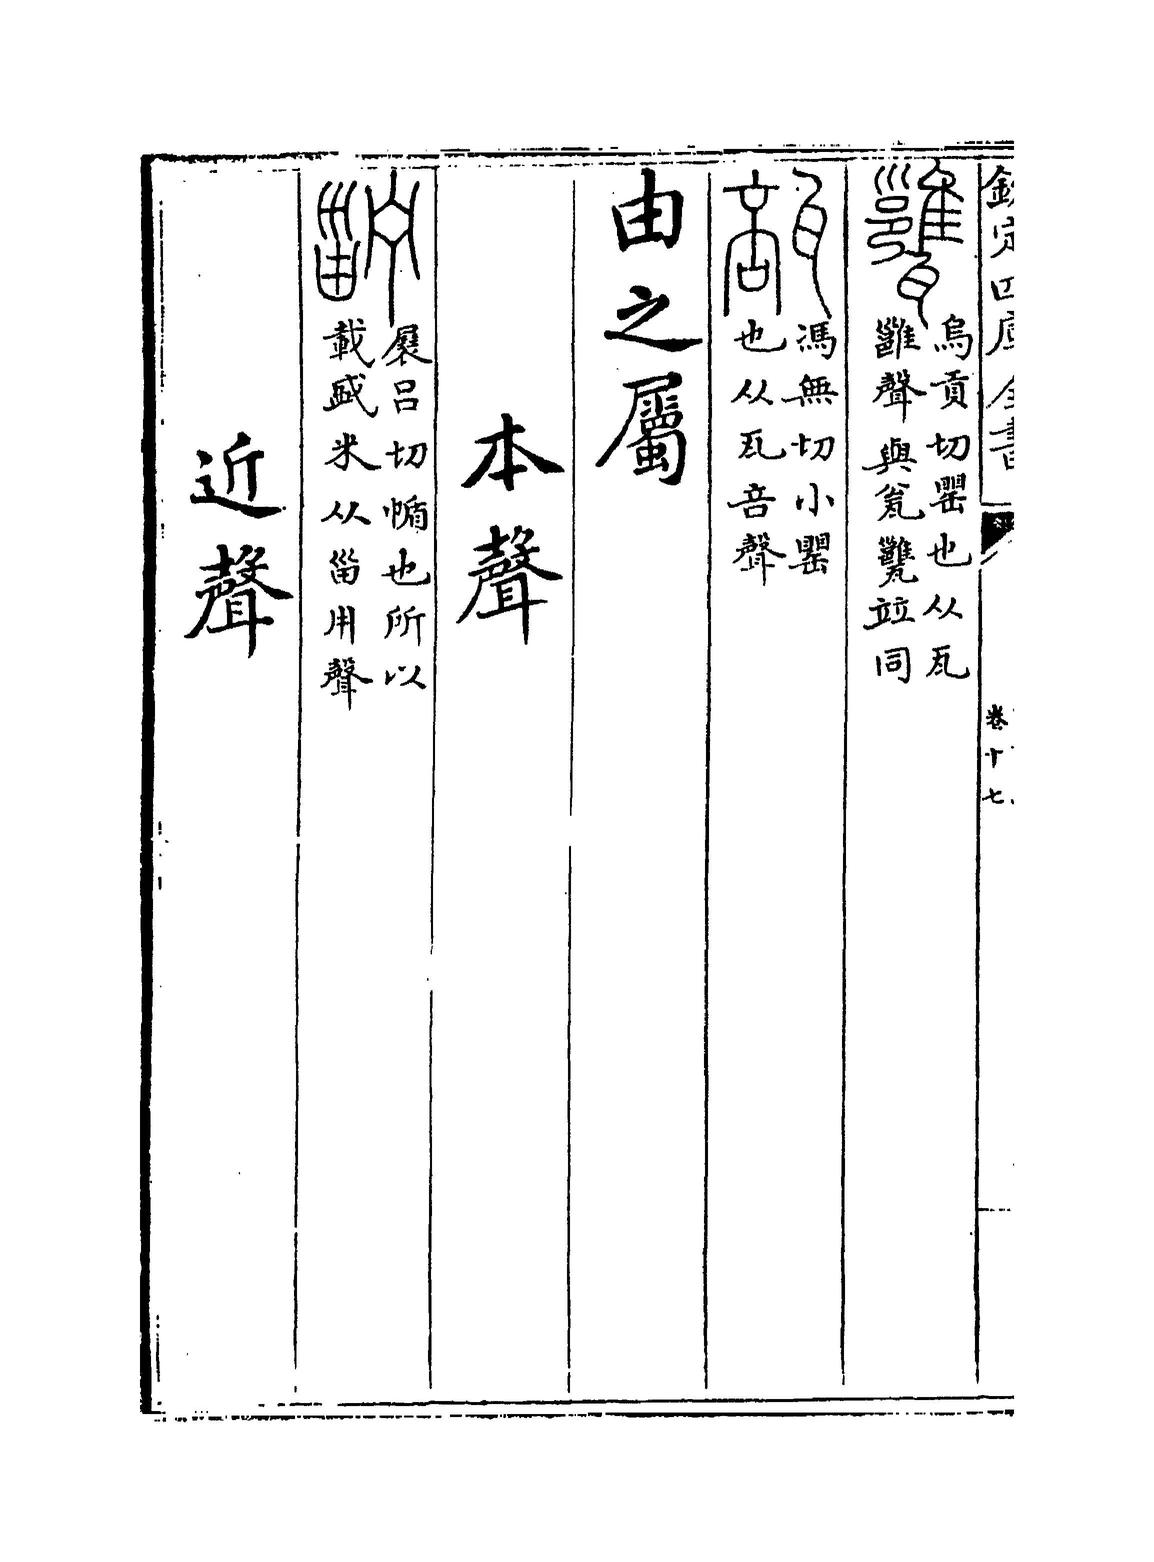 欽定四庫全書
卷十七
烏貢切罌也从瓦
雝聲與瓮甕竝同
馮無切小罌
也从瓦咅聲
由之屬
本聲
展呂切㡒也所以
載盛米从甾用聲
近聲